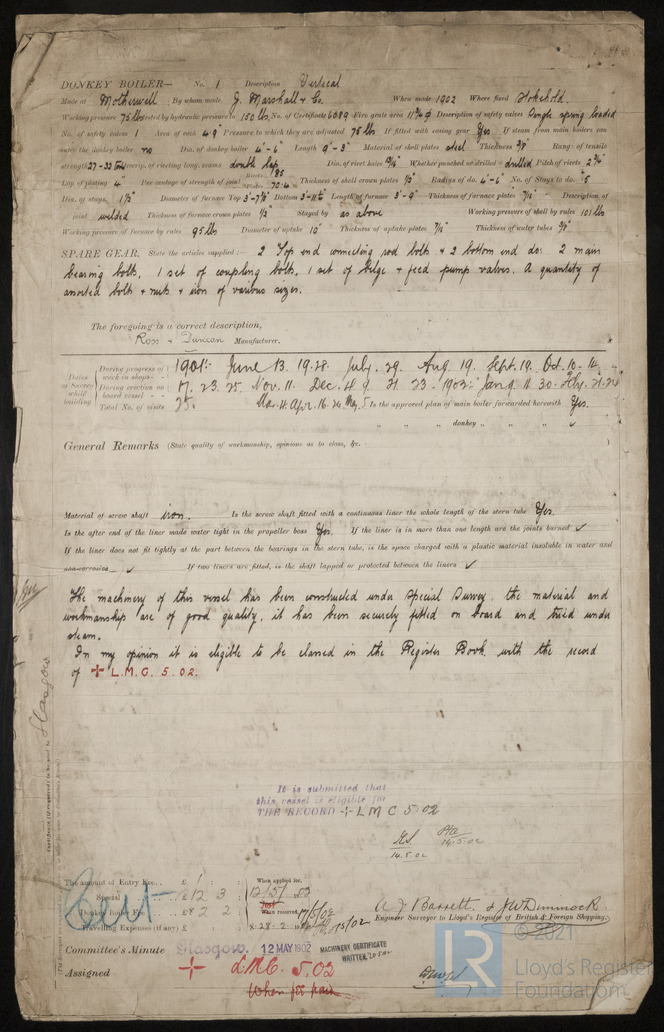 DONKEY BOILER— No. 1 Description Vertical
Made at Motherwell By whom made J. Marshall & Co. When made 1902 Where fixed Stokehold.
Working pressure 75 lbs tested by hydraulic pressure to 150 lbs No. of Certificate 6089 Fire grate area Description of safety valves Single spring loaded
No. of safety valves 1 Area of each 4.9" Pressure to which they are adjusted 75 lbs If fitted with easing gear Yes If steam from main boilers can
enter the donkey boiler no Dia. of donkey boiler 4'-6" Length 9'-3" Material of shell plates steel Thickness Range of tensile
strength 27-32 tons Descrip. of riveting long. seams double lap Dia. of rivet holes Whether punched or drilled drilled Pitch of rivets
Lap of plating 4" Per centage of strength of joint Rivets 85 Plates 70.4 Thickness of shell crown plates 1/2" Radius of do. 4'-6" No. of Stays to do. 5
Dia. of stays. 1 1/2" Diameter of furnace Top 3'-7 7/8" Bottom Length of furnace 3'-9" Thickness of furnace plates 7/16" Description of
joint welded Thickness of furnace crown plates 1/2" Stayed by as above Working pressure of shell by rules 101 lbs
Working pressure of furnace by rules 95 lbs Diameter of uptake 10" Thickness of uptake plates 7/16" Thickness of water tubes
SPARE GEAR. State the articles supplied:— 2 Top end connecting rod bolts & 2 bottom end do: 2 main
bearing bolts, 1 set of coupling bolts, 1 set of bilge & feed pump valves. A quantity of
assorted bolts & nuts & iron of various sizes.
The foregoing is a correct description,
Ross & Duncan Manufacturer.
Dates of Survey while building
During progress of work in shops - - 1901:- June 13. 19. 28. July. 29. Aug. 19. Sept. 19. Oct. 10. 14.
During erection on board vessel - - - 17. 23. 25. Nov. 11. Dec. 4. 9. 21. 23. 1902: Jan. 9. 11. 30. Feby. 21. 24
Total No. of visits 25. Mar. 4. Apr. 16. 24 May. 5 Is the approved plan of main boiler forwarded herewith Yes.
" " " donkey " " " ✓
General Remarks (State quality of workmanship, opinions as to class, &c.
Material of screw shaft iron. Is the screw shaft fitted with a continuous liner the whole length of the stern tube Yes.
Is the after end of the liner made water tight in the propeller boss Yes. If the liner is in more than one length are the joints burned ✓
If the liner does not fit tightly at the part between the bearings in the stern tube, is the space charged with a plastic material insoluble in water and
non-corrosive ✓ If two liners are fitted, is the shaft lapped or protected between the liners ✓
The machinery of this vessel has been constructed under Special Survey, the material and
workmanship are of good quality, it has been securely fitted on board and tried under
steam.
In my opinion it is eligible to be classed in the Register Book with the record
of + L.M.C. 5.02.
Glasgow
It is submitted that
this vessel is eligible for
THE RECORD + LMC 5.02
14.5.02
14.5.02
The amount of Entry Fee.. £ 1 : : When applied for,
Special £ 12 3 : 12/5/02
Donkey Boiler Fee £ 2 2 : When received,
Travelling Expenses (if any) £ : :
Cert
A J Barrett & J W Dimmock
Engineer Surveyor to Lloyd's Register of British & Foreign Shipping.
Committee's Minute Glasgow. 12 MAY 1902 MACHINERY CERTIFICATE
WRITTEN 20.5.02
Assigned + LMC. 5.02
When fee paid
© 2021
LR
Lloyd's Register
Foundation